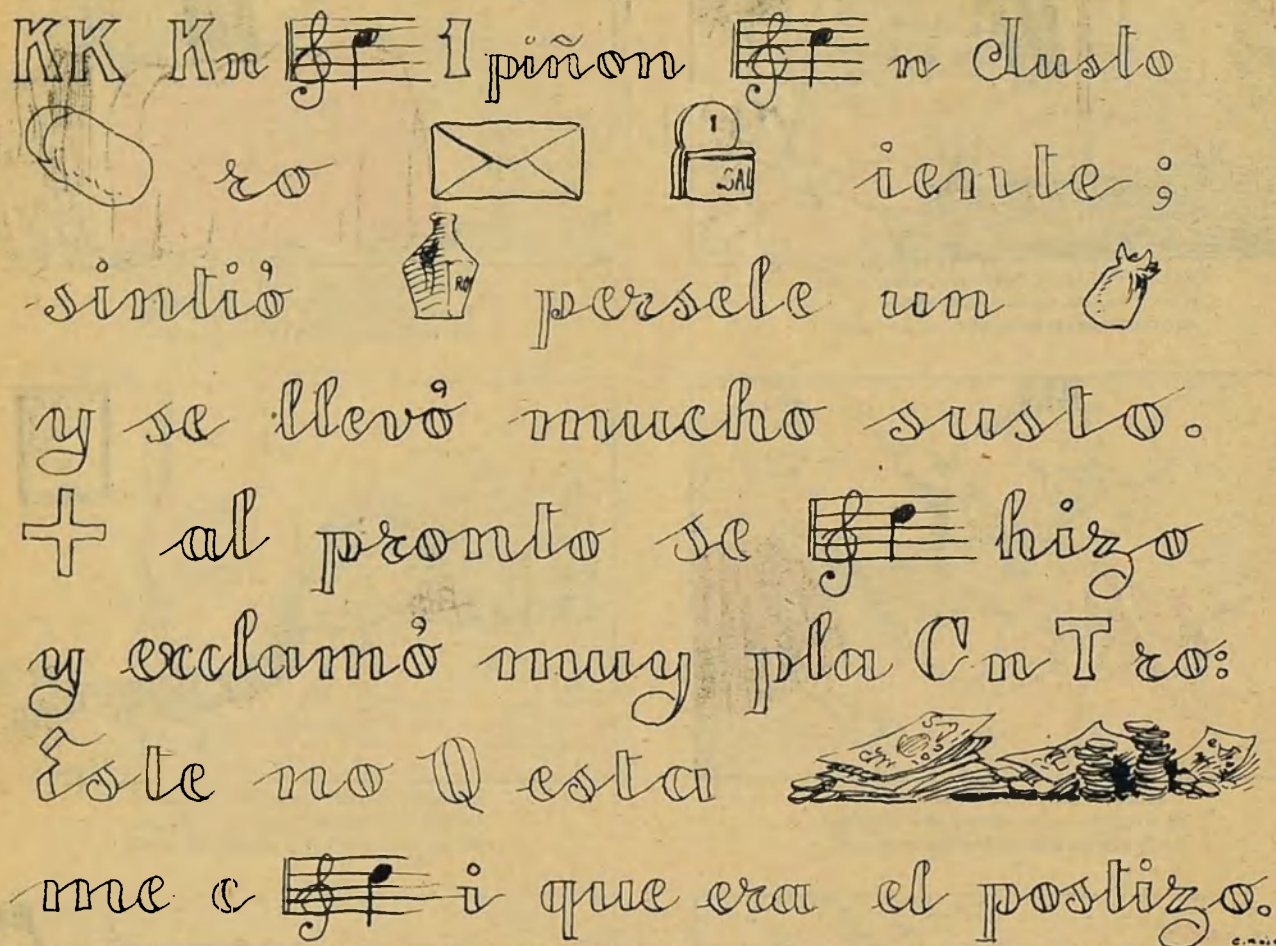 KK Kn 1 piñon n Justo
ro 1 SAL iente ;
sintió RO persele un
y se llevó mucho susto.
+ al pronto se hizo
y exclamó muy pla C n T ro:
Este no Q esta
me c i que era el postizo.